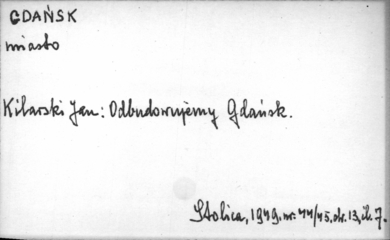 GDAŃSK
miasto
Kilarski Jan: Odbudowujemy Gdańsk.
Stolica, 1949. nr 44/45. str. 13, il. 7.